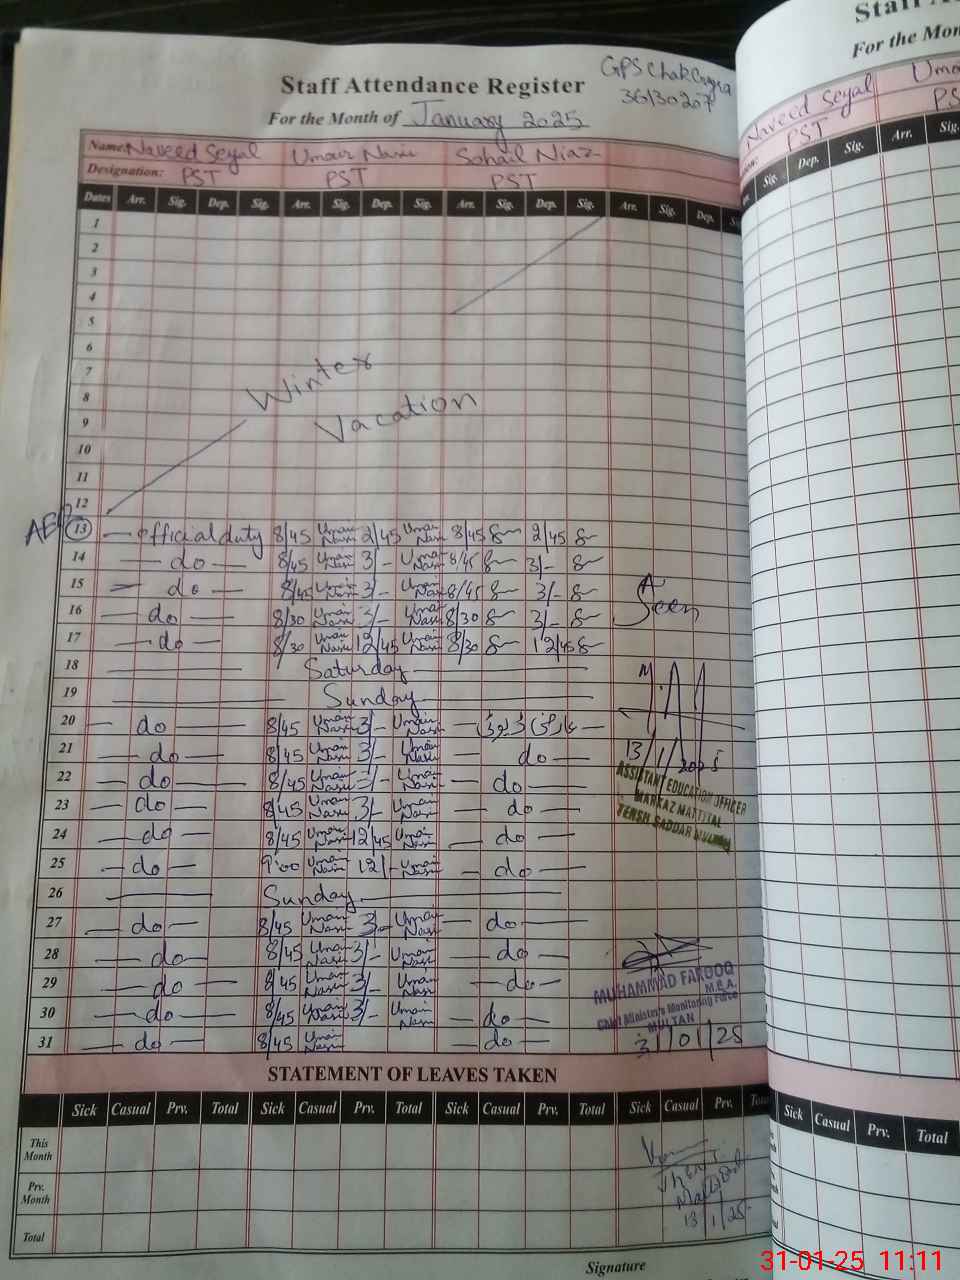 Staff Attendance Register
GPS Chak
36130207
For the Month of January 2025
Name: Naveed Seyal Umair Nasir Sohail Niaz
Designation: PST PST PST
Dates Arr. Sig. Dep. Sig. Arr. Sig. Dep. Sig. Arr. Sig. Dep. Sig. Arr. Sig. Dep.
1
2
3
4
5
6
7
8
9
10
11
12
Winter
Vacation
13 — official duty 8/45 Umair Nasir 2/45 Umair Nasir 8/45 2/45
14 — do — 8/45 Umair Nasir 3/- Umair Nasir 8/45 3/-
15 — do — 8/45 Umair Nasir 3/- Umair Nasir 8/45 3/-
16 — do — 8/30 Umair Nasir 3/- Umair Nasir 8/30 3/-
17 — do — 8/30 Umair Nasir 12/45 Umair Nasir 8/30 12/45
Seen
18 Saturday
19 Sunday
20 — do — 8/45 Umair Nasir 3/- Umair Nasir
21 — do — 8/45 Umair Nasir 3/- Umair Nasir — do —
22 — do — 8/45 Umair Nasir 3/- Umair Nasir — do —
23 — do — 8/45 Umair Nasir 3/- Umair Nasir — do —
24 — do — 8/45 Umair Nasir 12/45 Umair Nasir — do —
25 — do — 9:00 Umair Nasir 12/- Umair Nasir — do —
13/1/2025
ASSISTANT EDUCATION OFFICER
MARKAZ MATTITAL
TEHSIL SADDAR MULTAN
26 Sunday
27 — do — 8/45 Umair Nasir 3/- Umair Nasir — do —
28 — do — 8/45 Umair Nasir 3/- Umair Nasir — do —
29 — do — 8/45 Umair Nasir 3/- Umair Nasir — do —
30 — do — 8/45 Umair Nasir 3/- Umair Nasir — do —
31 — do — 8/45 Umair Nasir — do —
MUHAMMAD FAROOQ
M.E.A.
Chief Minister's Monitoring Force
MULTAN
31/01/25
STATEMENT OF LEAVES TAKEN
Sick Casual Prv. Total Sick Casual Prv. Total Sick Casual Prv. Total Sick Casual Prv.
This Month
Prv. Month
Total
13/1/25
Signature
For the
Naveed Seyal
PST
Sig. Dep. Sig. Arr. Sig.
Sick Casual Prv. Total
31-01-25 11:11